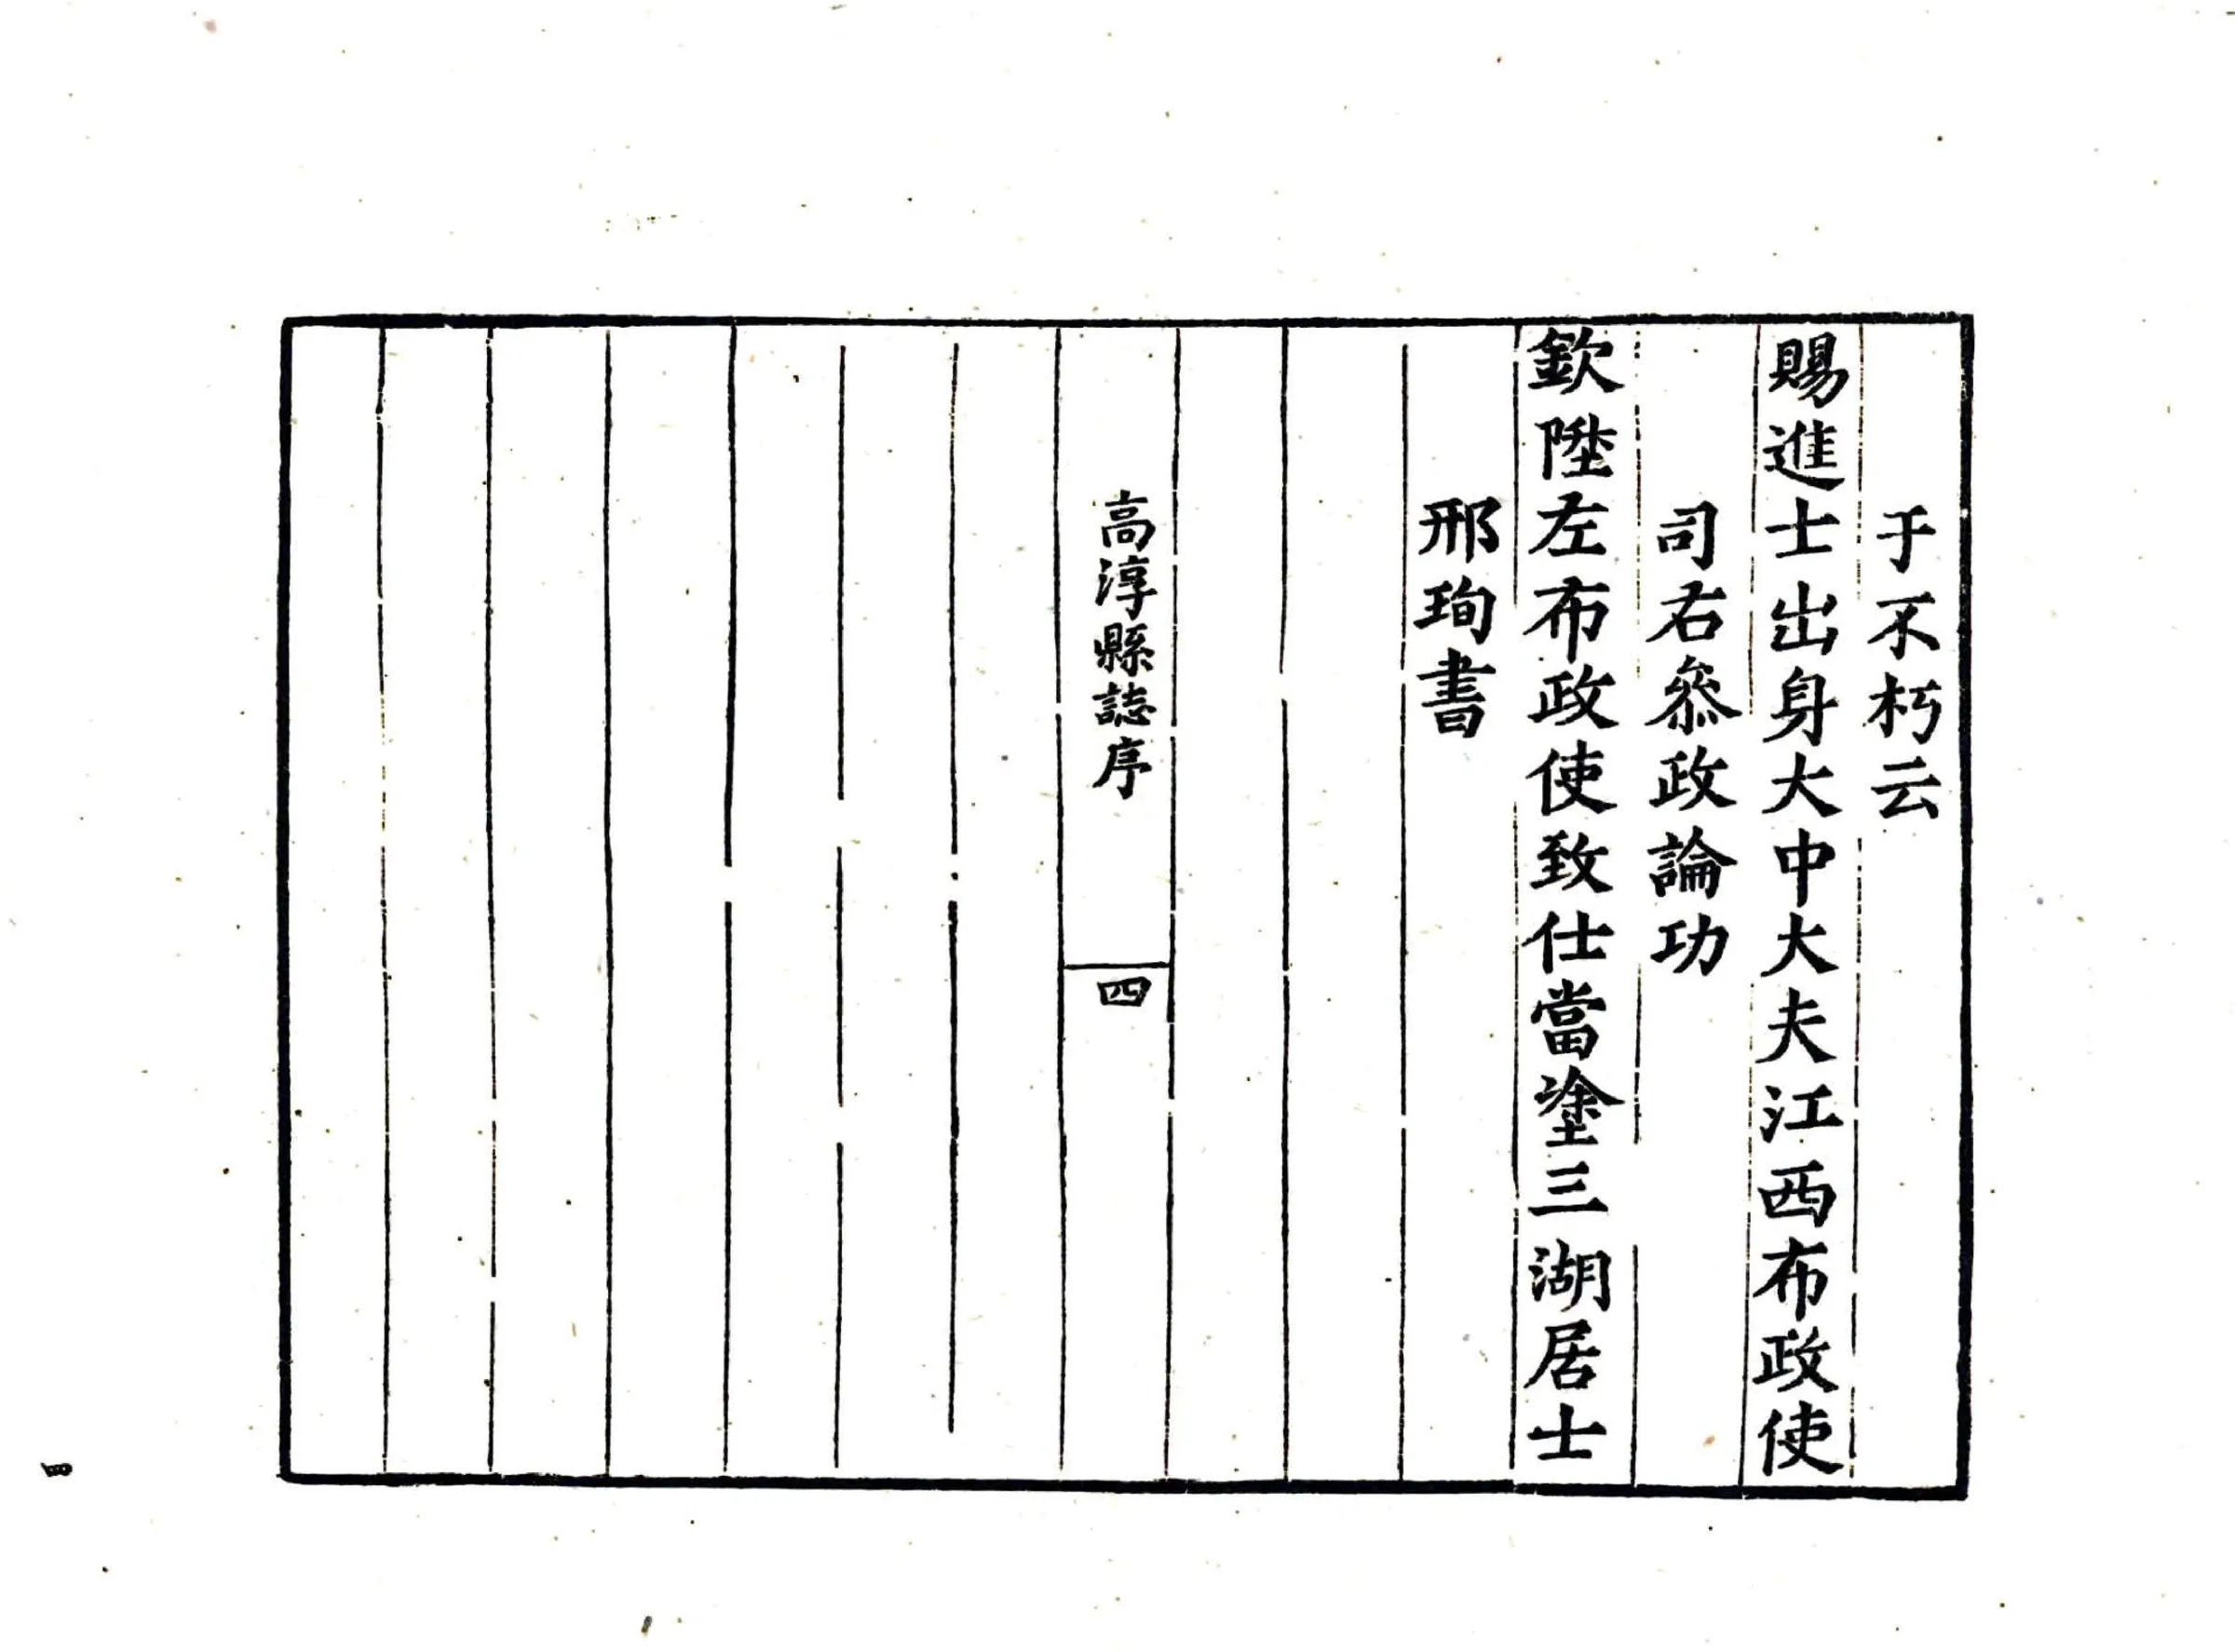 于不朽云
賜進士出身大中大夫江西布政使
司右叅政論功
欽陞左布政使致仕當塗三湖居士
邢珣書
高淳縣誌序
四